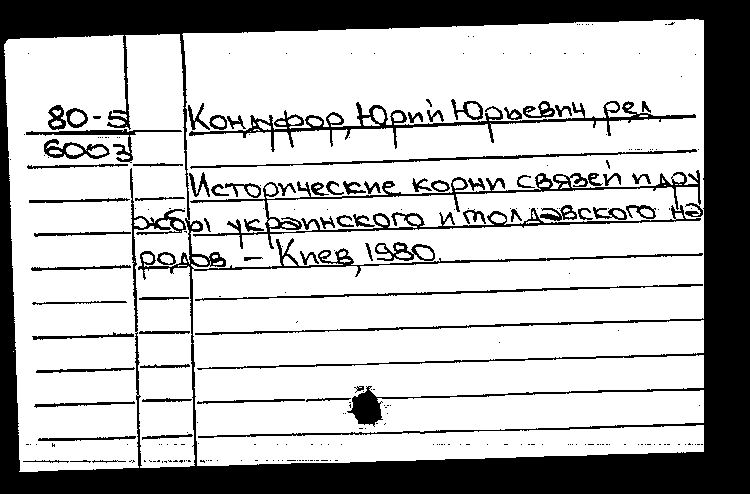 80-5 Кондуфор, Юрий Юрьевич, ред.
6003
Исторические корни связей и дру
жбы украинского и молдавского на
родов. – Киев, 1980.